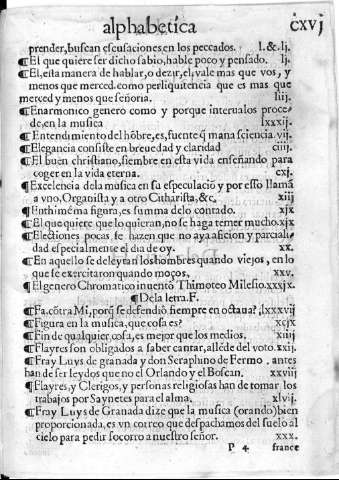 alphabetica cxvj
prender, buscan escusaciones en los peccados. l. & lj.
¶ El que quiere ser dicho sabio, hable poco y pensado. lj.
¶ El, esta manera de hablar, o dezir, el, vale mas que vos, y
menos que merced. como perliquitencia que es mas que
merced y menos que señoria. liij.
¶ Enarmonico genero como y porque interualos proce-
de, en la musica lxxxij.
¶ Entendimiento del hõbre, es, fuente q̃ mana sciencia. vij.
¶ Elegancia consiste en breuedad y claridad ciiij.
¶ El buen christiano, siembre en esta vida enseñando para
coger en la vida eterna. cxj.
¶ Excelencia dela musica en su especulaciõ y por esso llamã
a vno, Organista y a otro Citharista, &c. xiij
¶ Enthimema figura, es summa delo contado. xjx
¶ El que quiere que lo quieran, no se haga temer mucho. xjx
¶ Electiones pocas se hazen que no aya aficion y parciali-
dad especialmente el dia de oy. xx.
¶ En aquello se deleytan los hombres quando viejos, en lo
que se exercitaron quando moços, xxv.
¶ El genero Chromatico inuentò Thimoteo Milesio. xxxjx.
¶ Dela letra. F.
¶ Fa. cõtra Mi, porq̃ se defendiò siempre en octaua? lxxxvij
¶ Figura en la musica, que cosa es? xcjx
¶ Fin de qualquier cosa, es mejor que los medios. xiiij
¶ Flayres son obligados a saber cantar, allẽde del voto. xxij.
¶ Fray Luys de granada y don Seraphino de Fermo. antes
han de ser leydos que no el Orlando y el Boscan. xxviij
¶ Flayres, y Clerigos, y personas religiosas han de tomar los
trabajos por Saynetes para el alma. xlvij.
¶ Fray Luys de Granada dize que la musica (orando) bien
proporcionada, es vn correo que despachamos del suelo al
cielo para pedir socorro a nuestro señor. xxx.
P 4 france